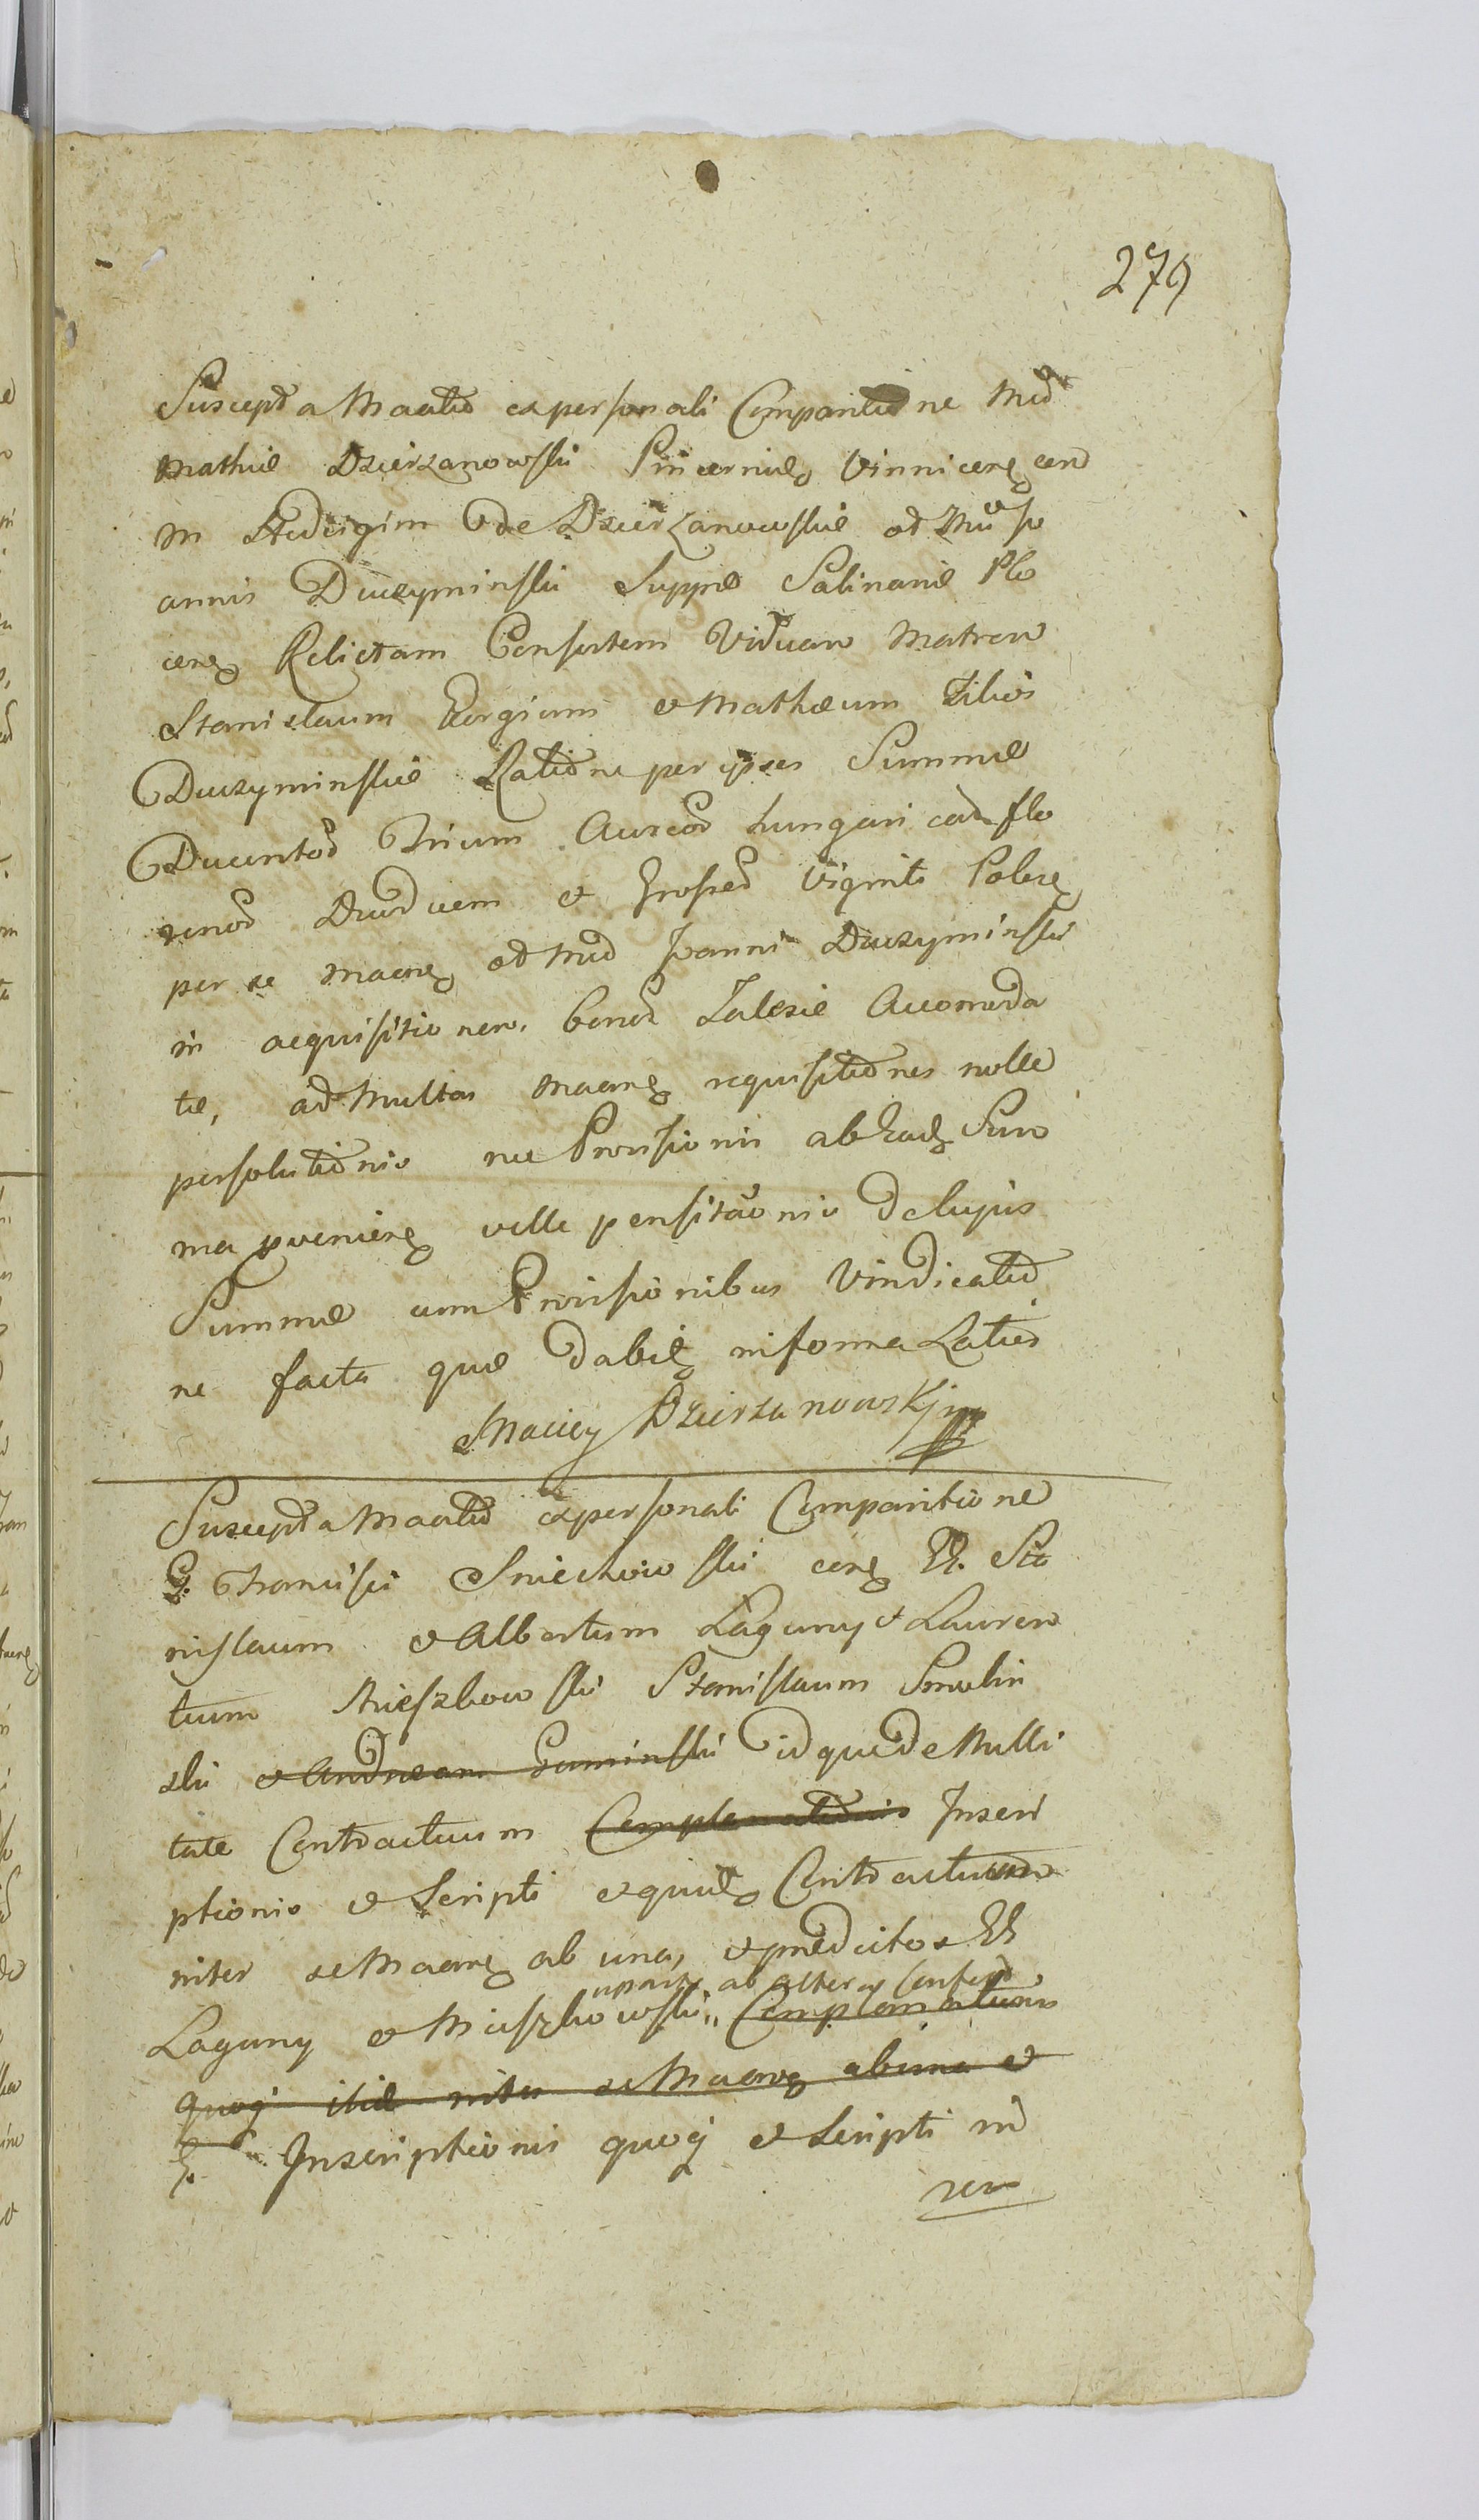 279
Suscepta Maãtio ex personali Comparitione Mãci
Mathiæ Dzierzanowski Pincernidæ Vinnicens con
Hedvigim de Dzierzanowskie
annis Duczyminski Suppæ Salinariæ Plo
cens Relictam Consortem Viduam Matrem
Stanislaum Georgium et Mathæum Filios
Duczyminskie Ratione per ipsos Summæ
Ducentor Trium Aureor Hungarical flo
renor Duodecem et Grossor Viginti Polens
per se Maãnem Joanni Duczyminski
in acquisitionem bonor Zalesie Accomoda
tæ, ad Multas Maãnem requisitiones nolle
persolutionis nec Provisionis ab Eadem Sum
ma proveniens velle pensitationis de hujus
Summæ cum Provisionibus Vindicatio
ne facta quæ dabitur in forma Latiori
Maciey Dzierzanowski mp
Suscepta Maãtio ex personali Comparitione
G. Francisci Smiechowski cons G. Sta
nislaum et Albertum Laguny et Lauren
tium Mieszkowski Stanislaum Smolin
ski et Andream Guminski idque de Nulli
tate Contractuum Complanationis Inscri
ptionis et Scripti et quidem Contractuum
inter se Maãnem ab una, et prædictos G
uparte ab altera Confect
Laguny et Mieszkowski " Complanationis
quoq itid inter se Maãnem ab una et
G. Inscriptionis quoq et Scripti in
rem